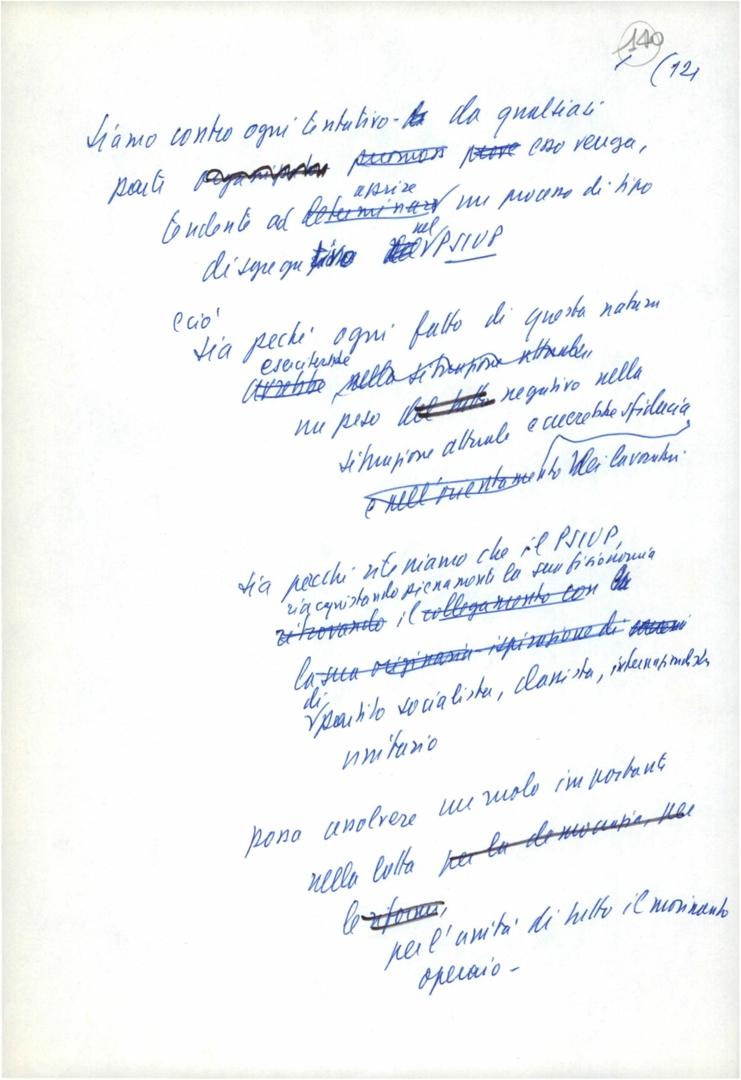 140
(12)
siamo contro ogni tentativo - da qualsiasi
parte esso venga,
aprire
tendente ad determinare un processo di tipo
nel
disgregativo PSIUP
e ciò
sia perché ogni fatto di questa natura
eserciterebbe
avrebbe nella situazione attuale
un peso del tutto negativo nella
situazione attuale e accrescerebbe sfiducia
e nell'orientamento dei lavoratori.
sia perché riteniamo che il PSIUP,
riacquistando pienamente la sua fisionomia
ritrovando il collegamento con la
la sua originaria ispirazione di
di
partito socialista, classista, internazionalista
unitario
possa assolvere un ruolo importante
nella lotta per la democrazia, per
le riforme,
per l'unità di tutto il movimento
operaio -